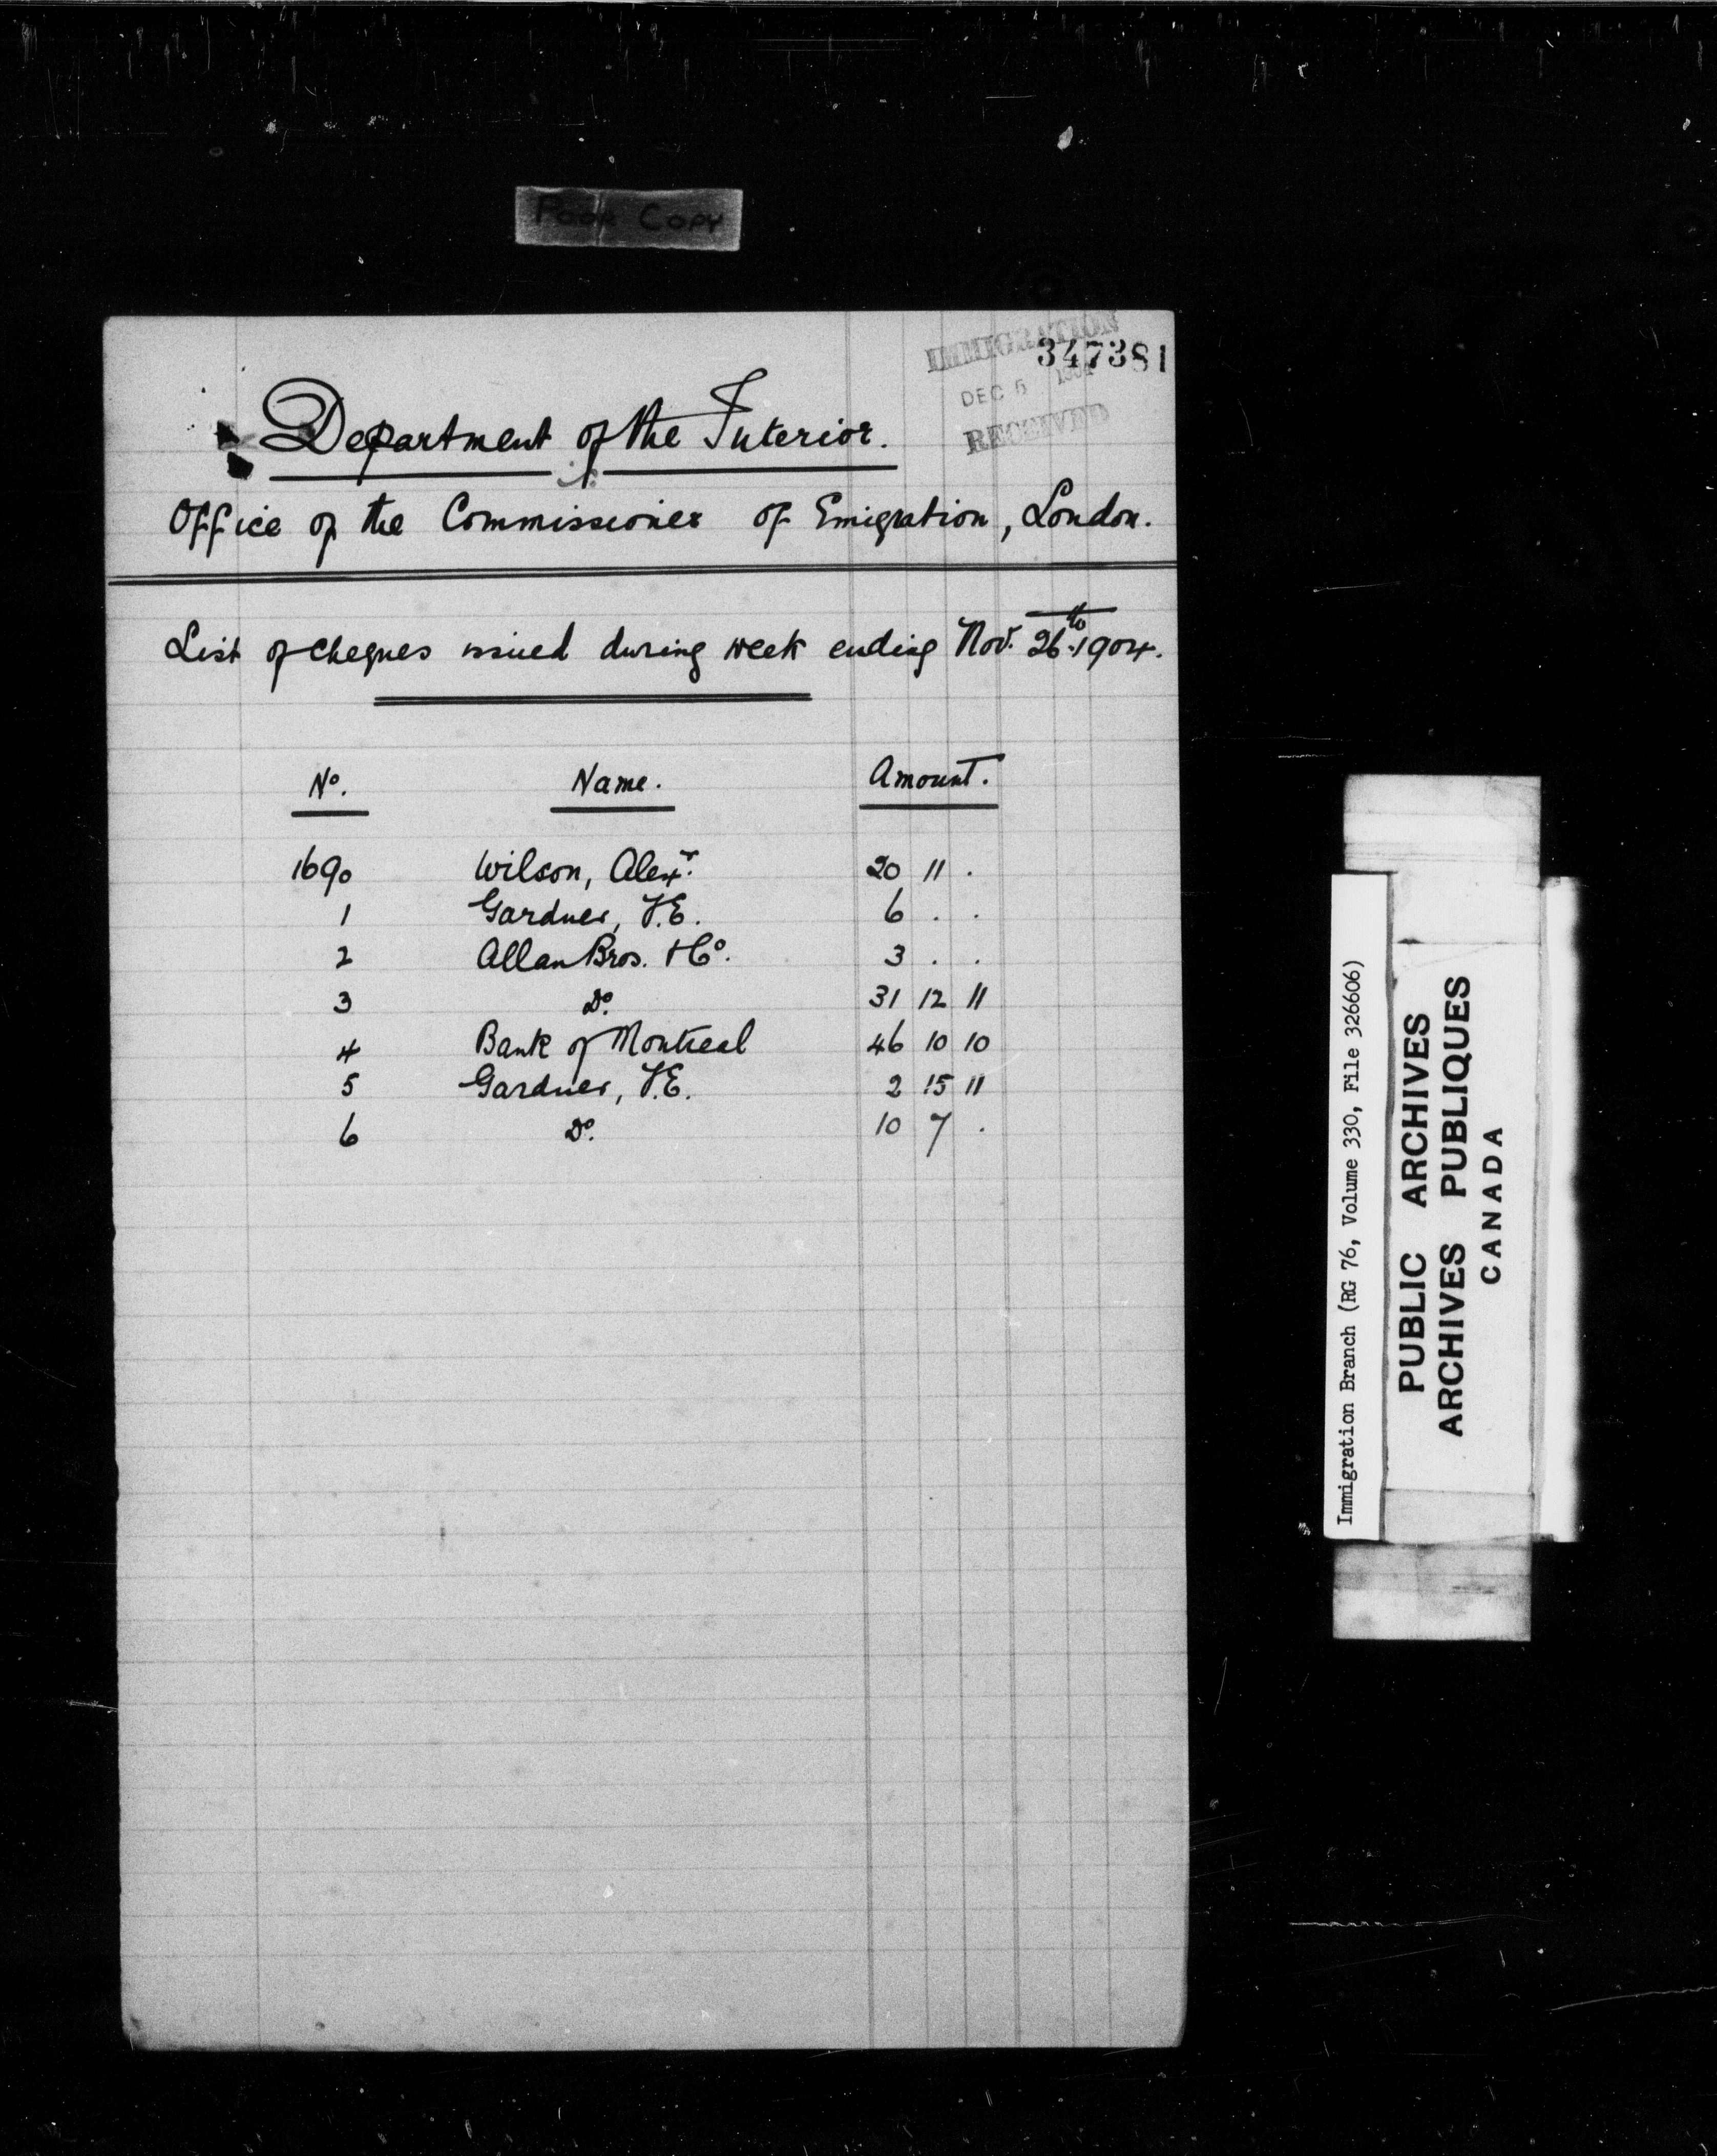 POOR COPY
IMMIGRATION
347381
DEC 5 1904
RECEIVED
Department of the Interior.
Office of the Commissioner of Emigration, London.
List of cheques issued during week ending Nov. 26th 1904.
No. Name. Amount.
1690 Wilson, Alexr. 20 11 .
1 Gardner, F.E. 6 . .
2 Allan Bros. & Co. 3 . .
3 Do. 31 12 11
4 Bank of Montreal 46 10 10
5 Gardner, F.E. 2 15 11
6 Do. 10 7 .
Immigration Branch (RG 76, Volume 330, File 326606)
PUBLIC ARCHIVES
ARCHIVES PUBLIQUES
CANADA